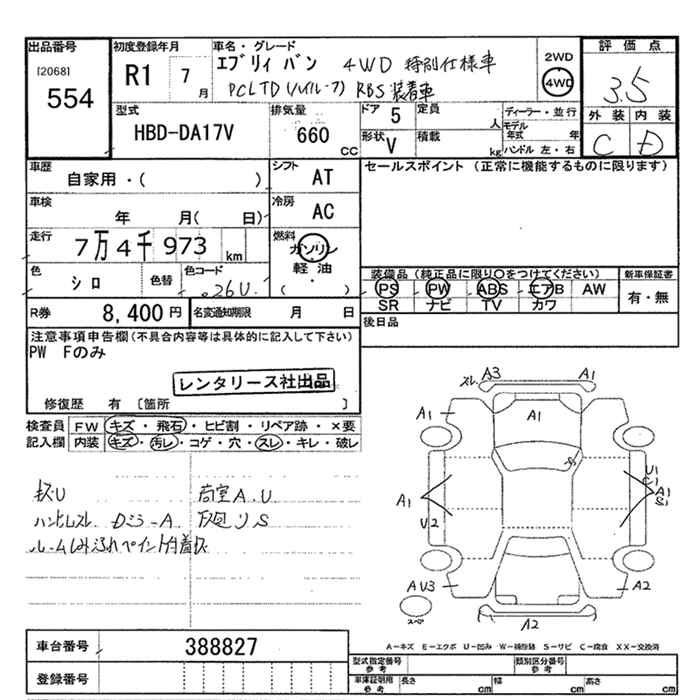 出品番号 初度登録年月 車名・グレード 評価点
[2068] 554
R1 7月
エブリィ バン 4WD 特別仕様車
PCLTD(ハイルーフ) RBS装着車
2WD 4WD
3.5
型式 排気量 ドア 5 定員 人 ディーラー・並行
HBD-DA17V 660 CC
モデル年式 年
形状 V 積載 kg ハンドル 左・右
外装 内装
C D
車歴 自家用・( ) シフト AT
セールスポイント (正常に機能するものに限ります)
車検 年 月( 日) 冷房 AC
走行 7万4千973 km 燃料 ガソリン
軽油
( )
色 シロ 色替 色コード 26U
装備品 (純正品に限り○をつけてください) 新車保証書
PS PW ABS エアB AW 有・無
SR ナビ TV カワ
R券 8,400円 名変通知期限 月 日 後日品
注意事項申告欄(不具合内容等は具体的に記入して下さい)
PW Fのみ
レンタリース社出品
修復歴 有 [箇所 ]
検査員 FW キズ・飛石・ヒビ割・リペア跡・×要
記入欄 内装 キズ・汚レ・コゲ・穴・スレ・キレ・破レ
荷室A.U
ハンドルスレ Dミラ-A S
スレ A3 A1
A1 A1 A1
A1 U2
U1 C1 A1 S1
S
AU3 A2
スペア
A2
A-キズ E-エクボ U-凹み W-補修跡 S-サビ C-腐食 XX-交換済
車台番号 388827
登録番号
型式指定番号 参考 類別区分番号 参考
車庫証明用 参考 長さ cm 幅 cm 高さ cm